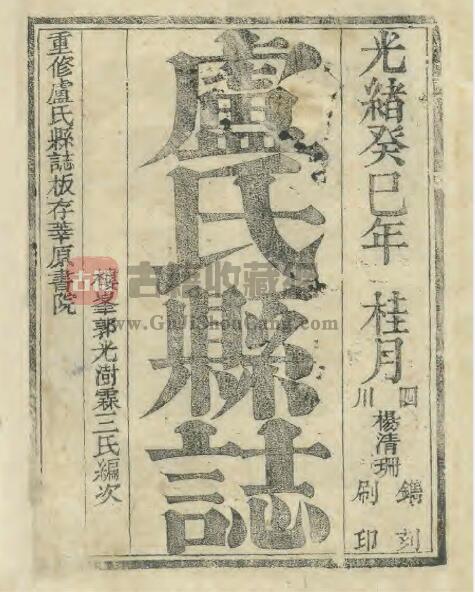 光緒癸巳年 桂月
四川
楊清珊
鐫刻
刷印
盧氏縣誌
峯郭光澍霖三氏編次
重修盧氏縣誌板存莘原書院
古籍
古籍收藏網
www.GuJiShouCang.com